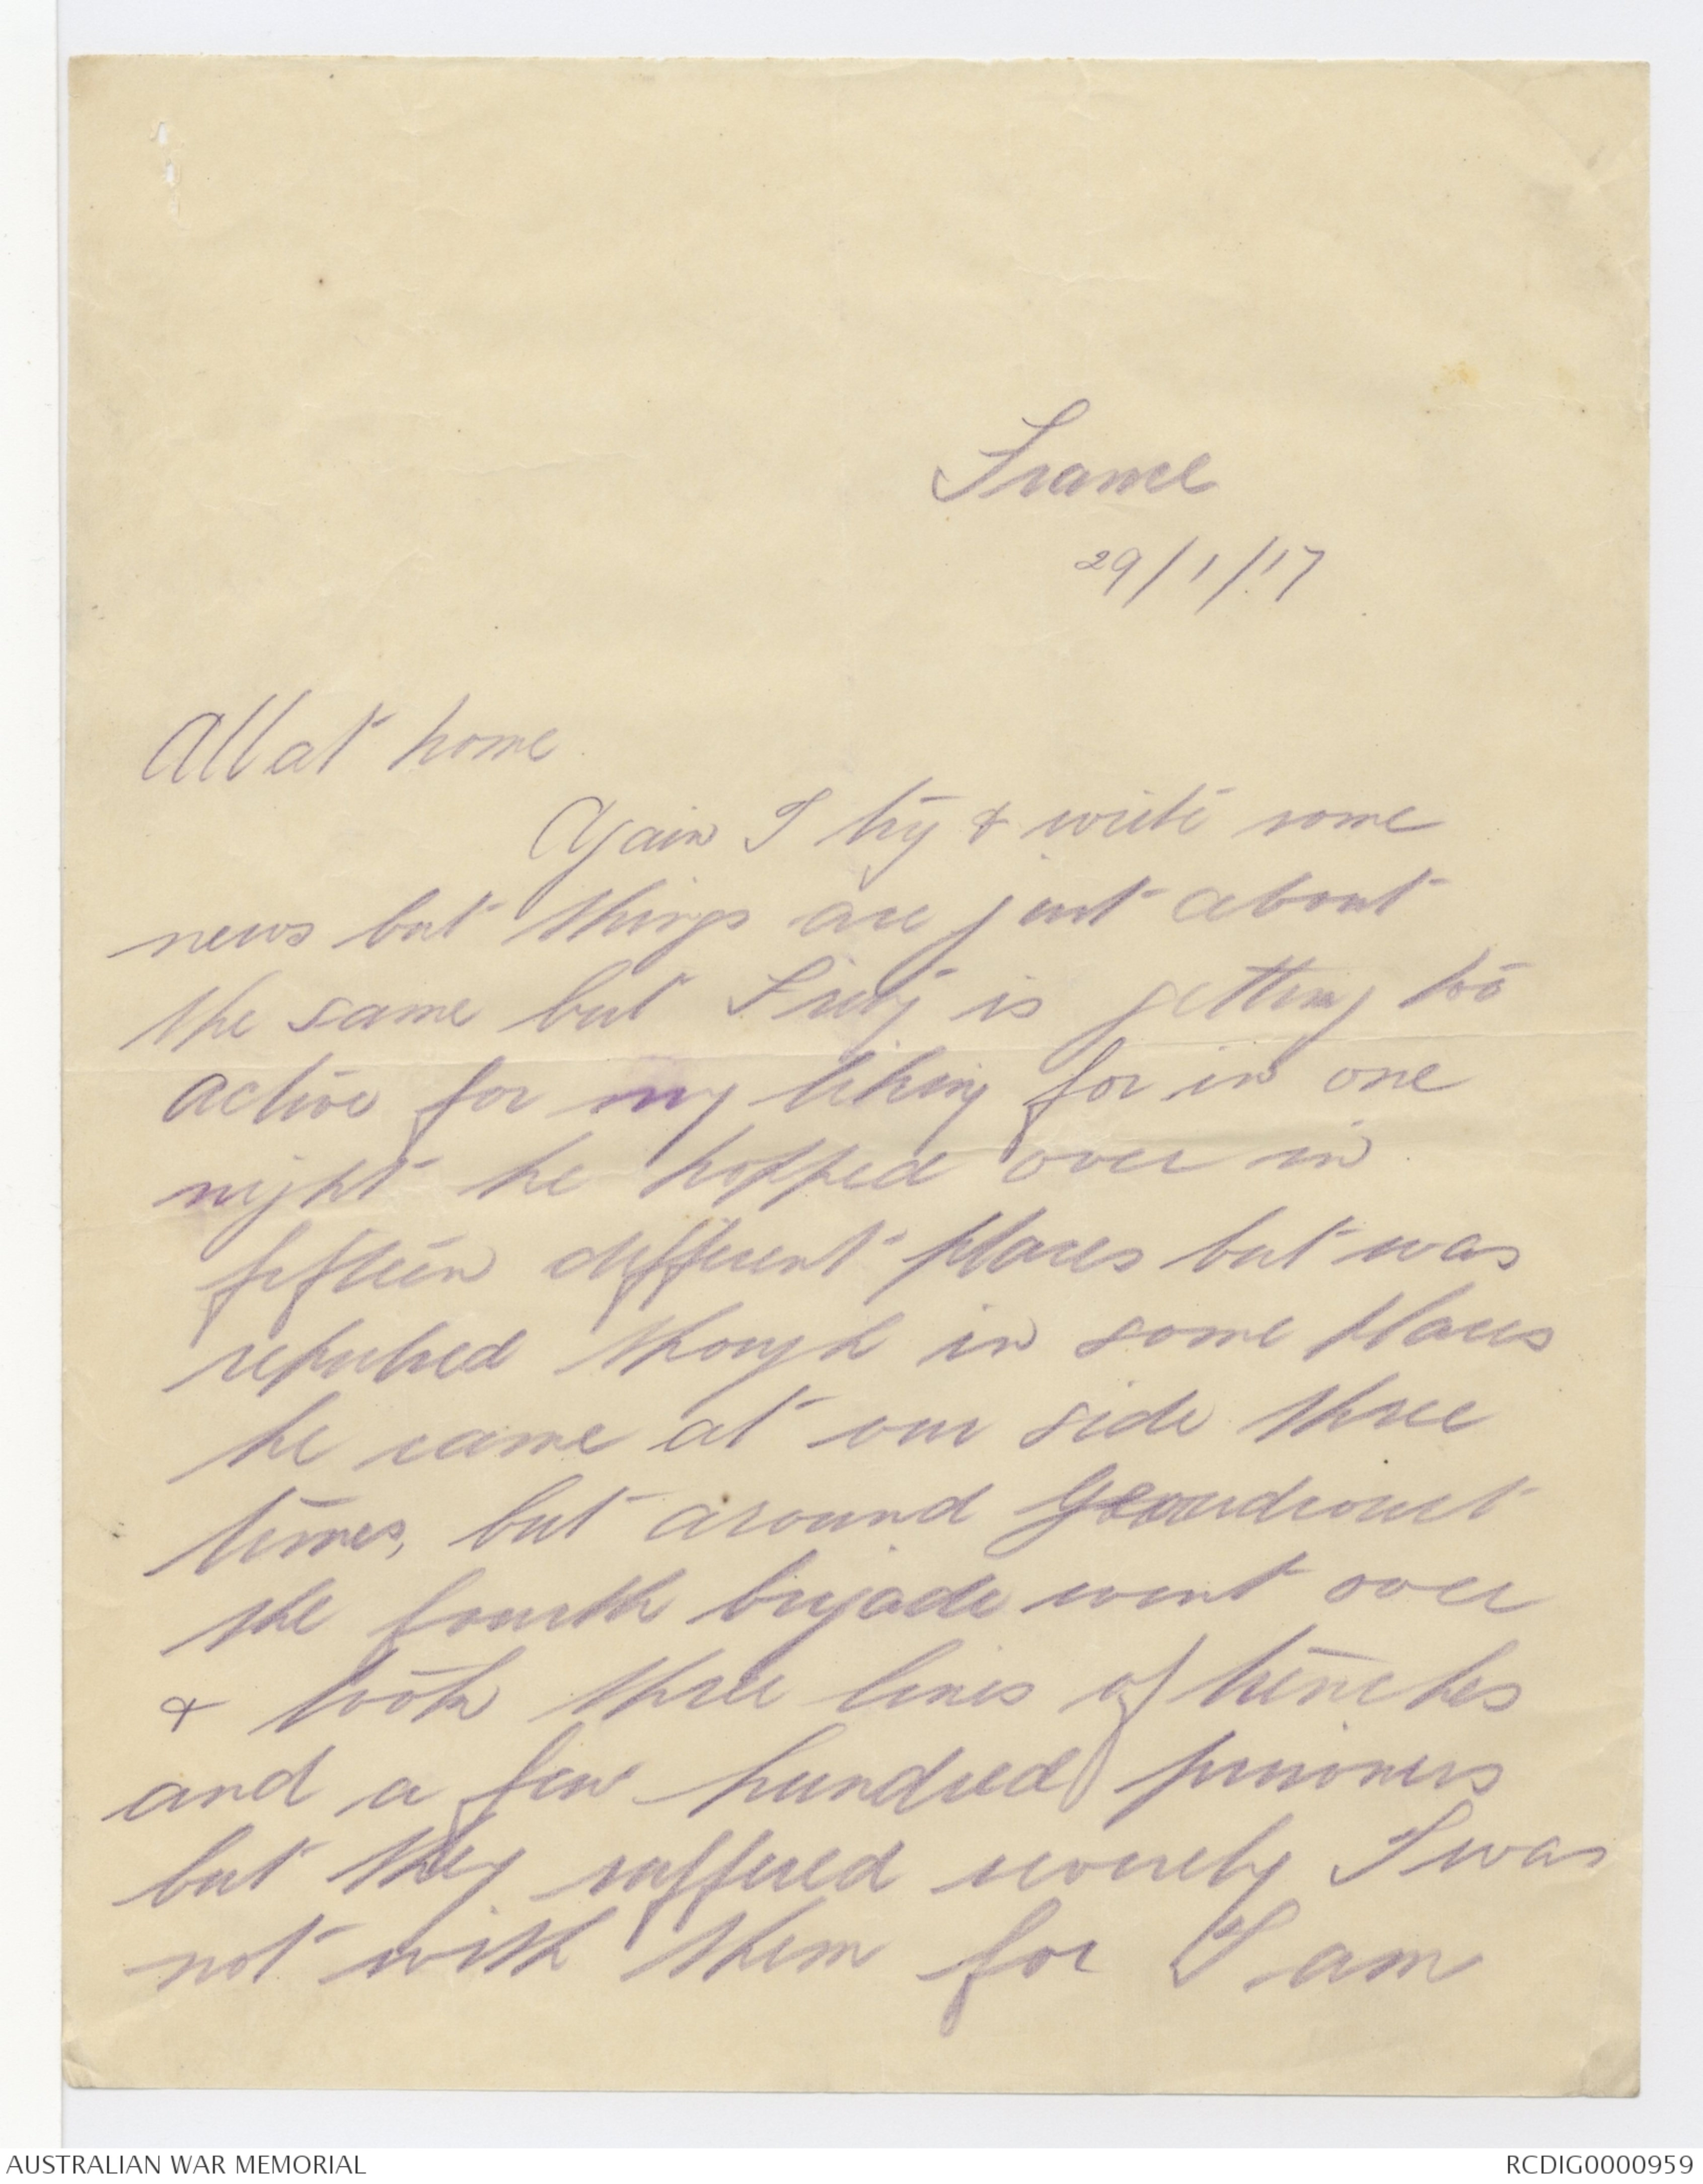 France
29/1/17
All at home.
Again I try & write some
news but things are just about
the same but Fritz is getting too
active for my liking for in one
night he hopped over in
fifteen different places but was
repulsed though in some places
he came at our side three
times, but around
the fourth brigade went over
& took three lines of trenches
and a few hundred prisoners
but they suffered severely I was
not with them for I am
AUSTRALIAN WAR MEMORIAL
RCDIG0000959